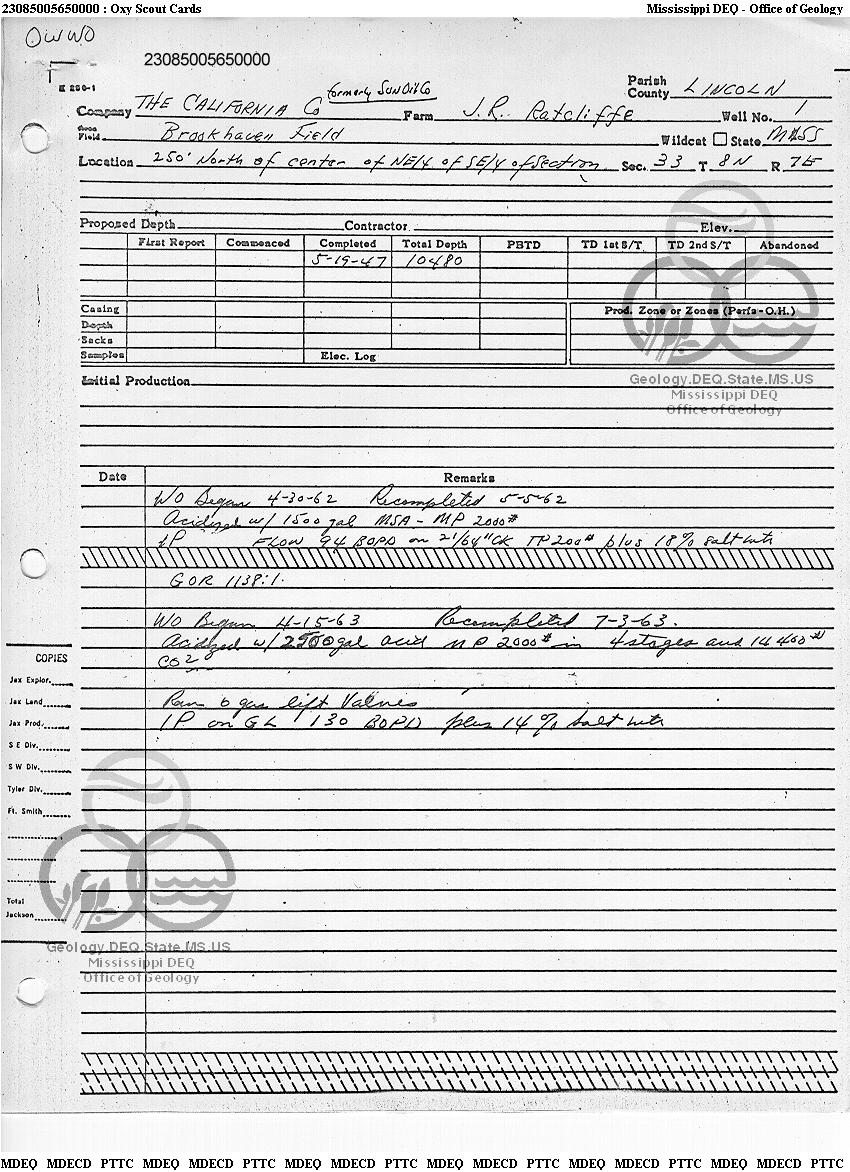 23085005650000 : Oxy Scout Cards Mississippi DEQ - Office of Geology
OWWO
23085005650000
E 250-1
Company THE CALIFORNIA Co formerly Sun Oil Co Farm J.R. Ratcliffe Parish County LINCOLN Well No. 1
Field Brookhaven Field Wildcat State MISS
Location 250' North of center of NE/4 of SE/4 of Section Sec. 33 T 8N R 7E
Proposed Depth Contractor Elev.
First Report Commenced Completed Total Depth PBTD TD 1st S/T TD 2nd S/T Abandoned
5-19-47 10480
Casing Prod. Zone or Zones (Perfs-O.H.)
Depth
Sacks
Samples Elec. Log
Initial Production
Geology.DEQ.State.MS.US
Mississippi DEQ
Office of Geology
Date Remarks
WO Began 4-30-62 Recompleted 5-5-62
Acidized w/ 1500 gal MSA - MP 2000#
IP FLOW 94 BOPD on 21/64" CK TP 200# plus 18% salt wtr
GOR 1138:1.
WO Began 4-15-63 Recompleted 7-3-63.
Acidized w/ gal acid MP 2000# in 4 stages and 14400#
CO2
Ran 6 gas lift Valves
IP on GL 130 BOPD plus 14% Salt wtr
COPIES
Jax Explor.
Jax Land
Jax Prod.
S E Div.
S W Div.
Tyler Div.
Ft. Smith
Total
Jackson
Geology.DEQ.State.MS.US
Mississippi DEQ
Office of Geology
MDEQ MDECD PTTC MDEQ MDECD PTTC MDEQ MDECD PTTC MDEQ MDECD PTTC MDEQ MDECD PTTC MDEQ MDECD PTTC